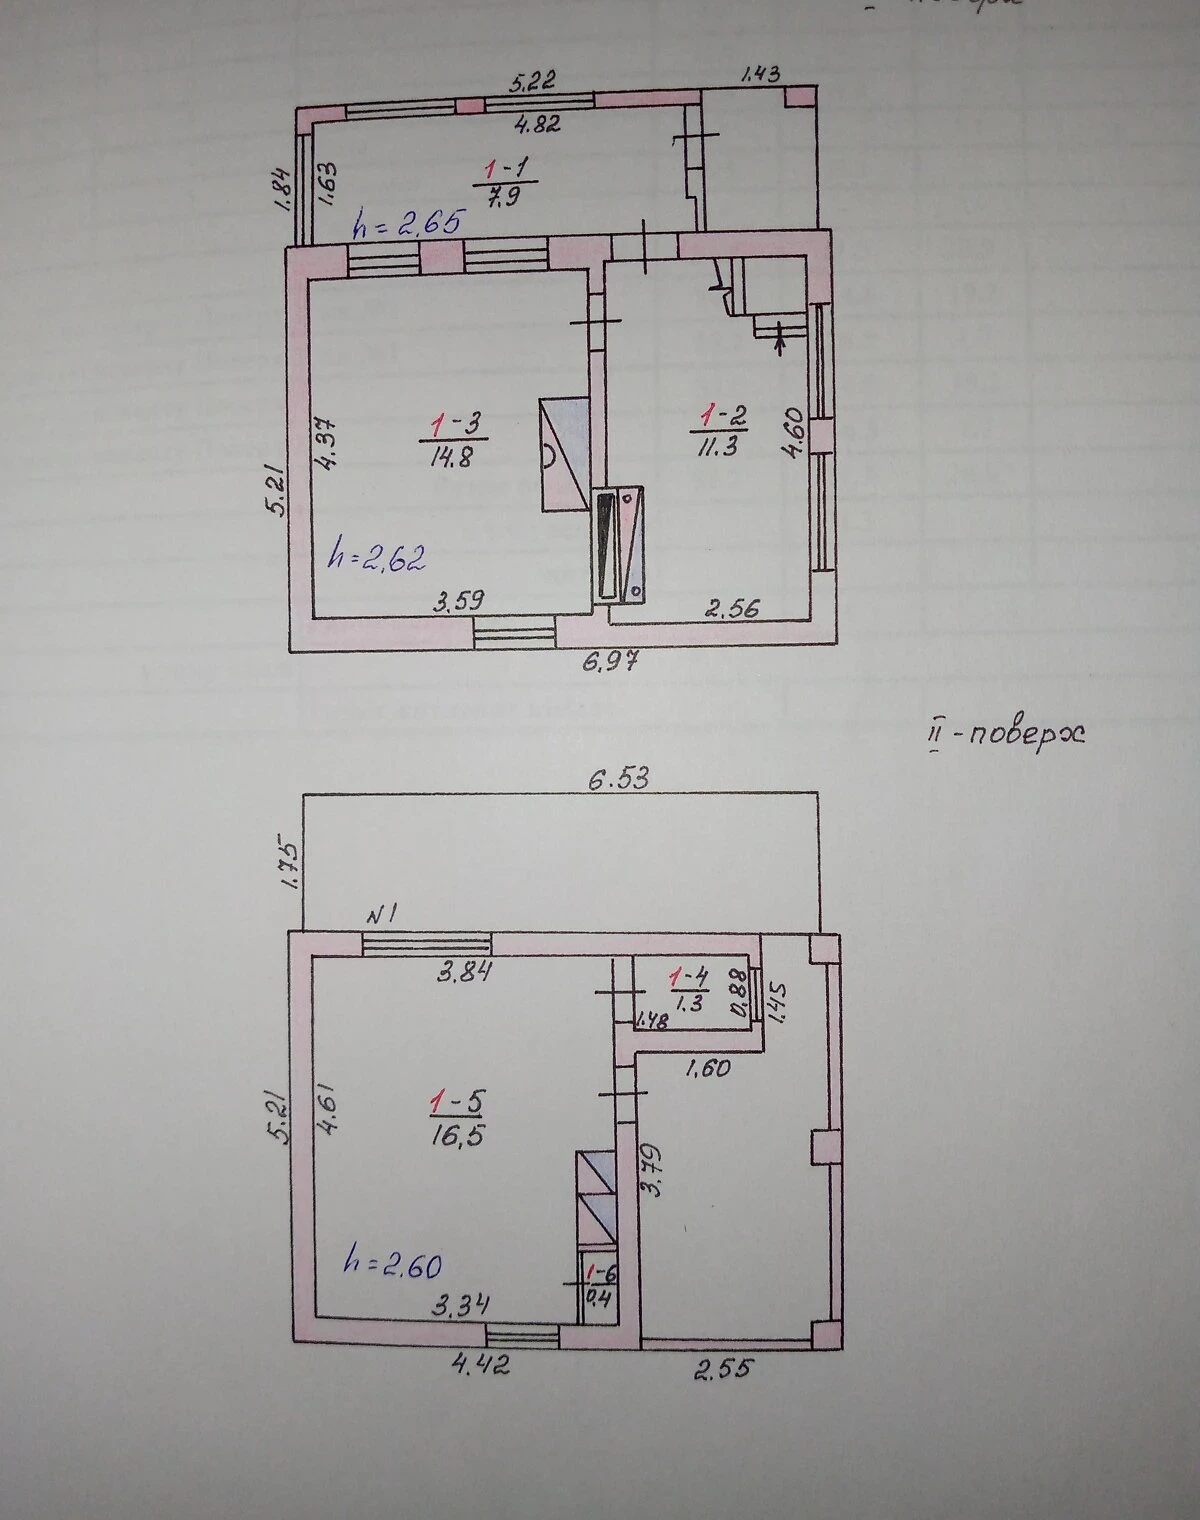 I - поверх
5.22
1.43
4.82
1.84
1.63
1-1
7.9
h=2,65
1-3
14.8
1-2
11.3
4.37
4.60
5.21
h=2,62
3.59
2.56
6.97
II - поверх
6.53
1.75
N1
3.84
1-4
1.3
0.88
1.45
1.48
1.60
1-5
16,5
5.21
4.61
3.79
h=2.60
1-6
0.4
3.34
4.42
2.55